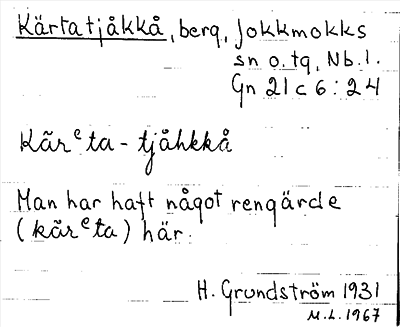 Kärtatjåkkå, berg, Jokkmokks
sn o. tg, Nb. l.
Gn 21 c 6 : 24
Kãrᵉta - tjåhkkå
Man har haft något rengärde
(kãrᵉta) här.
H. Grundström 1931
M.L. 1967